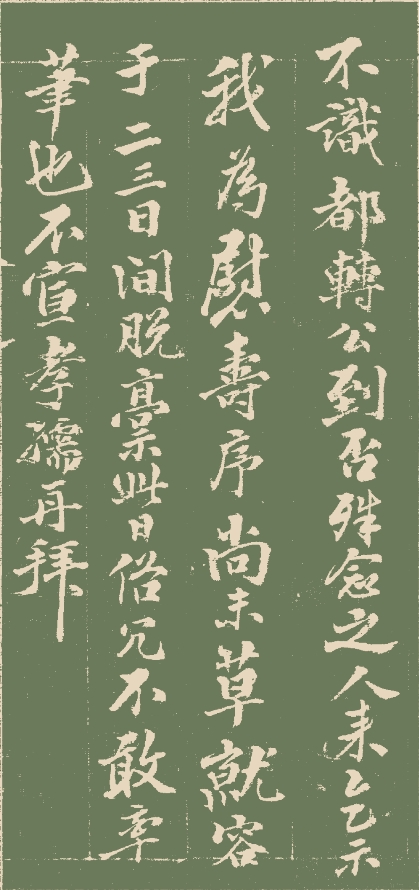 不識都轉公到否殊念之人来乞示
我為慰壽序尚未草就容
于二三日间脱稾此日俗冗不敢率
筆也不宣孝孺再拜